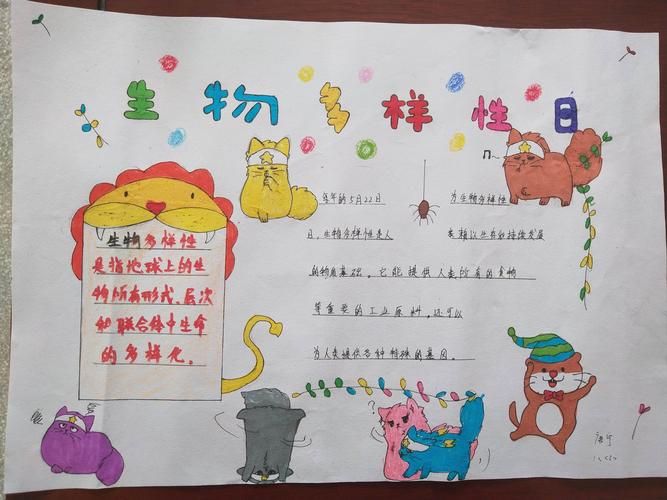 生物多样性日
生物多样性
是指地球上的生
物所有形式、层次
和联合体中生命
的多样化。
每年的5月22日 为生物多样性
日，生物多样性是人 类赖以生存和持续发展
的物质基础。它能提供人类所有的食物
等重要的工业原料，还可以
为人类提供各种特殊的基因。